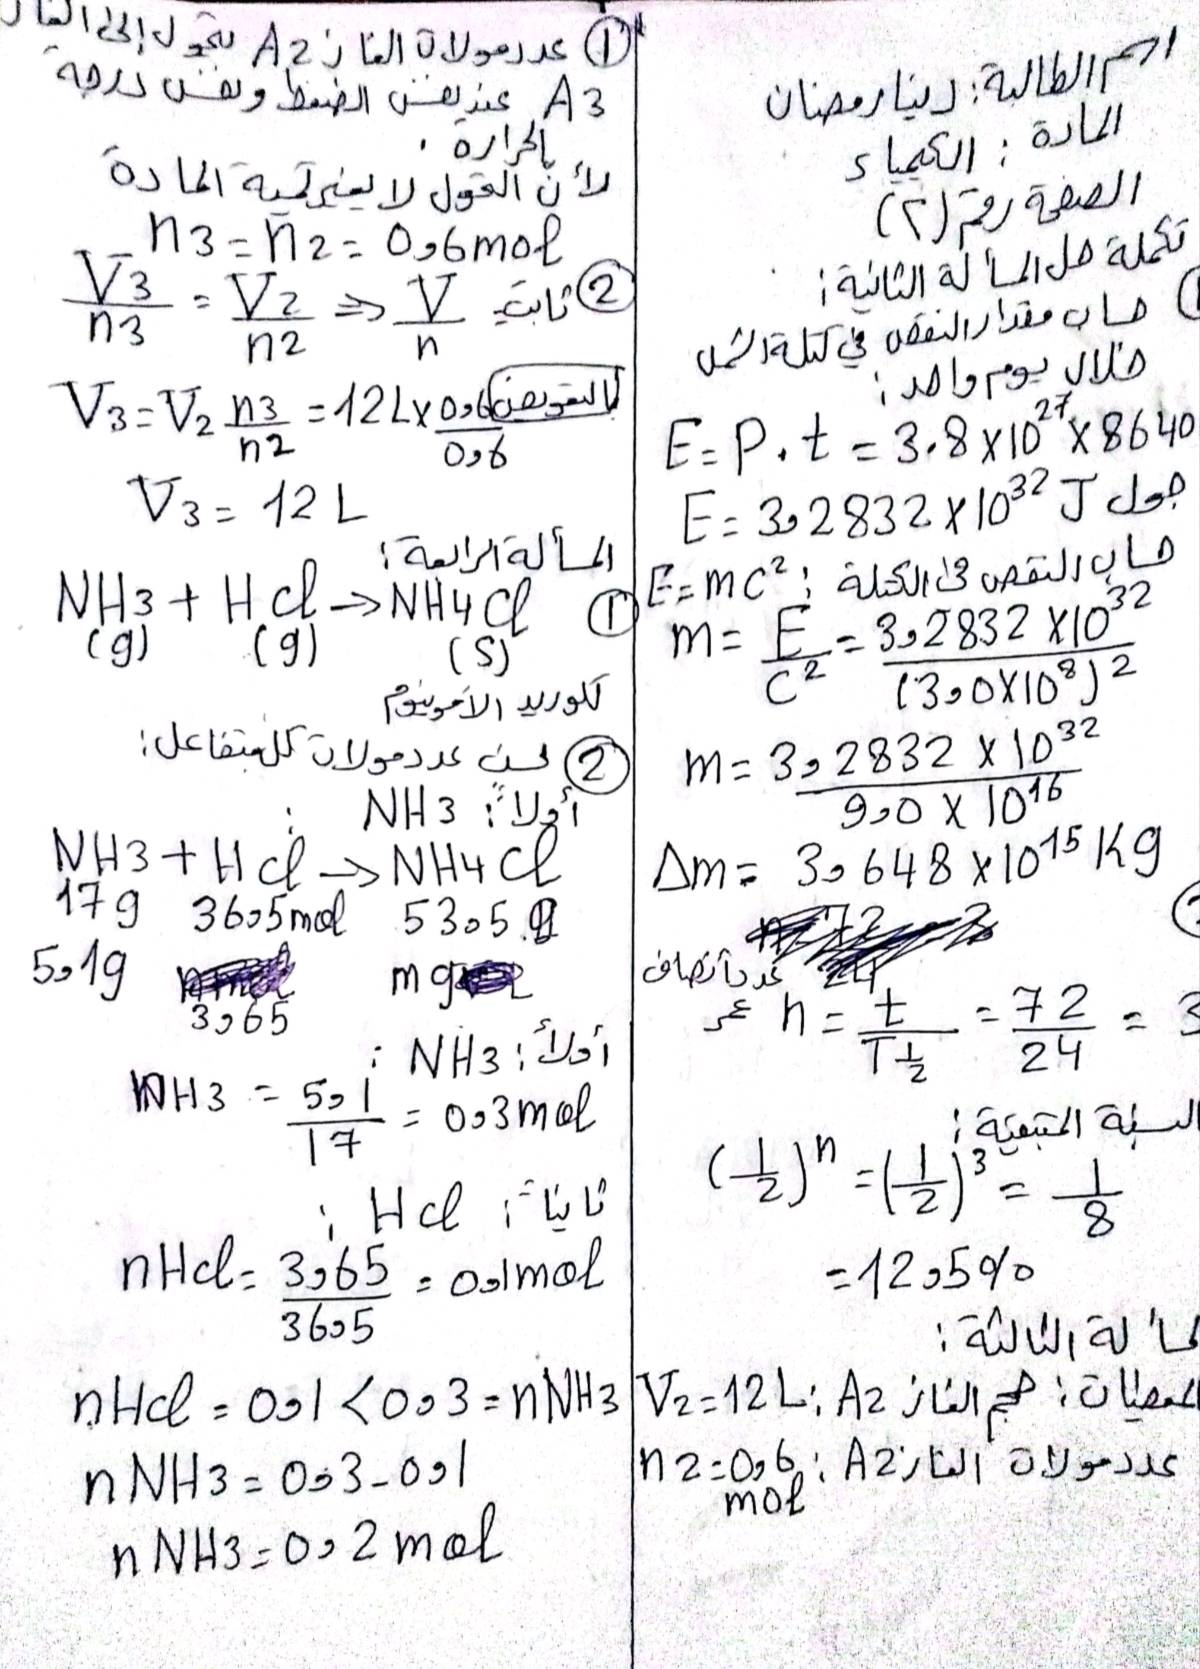 اسم الطالبة: دينا رمضان
المادة: الكيمياء
الصفحة رقم (٢)
تكملة حل المسألة الثانية:
حساب مقدار النقص في كتلة الشمس
خلال يوم واحد:
E = P . t = 3.8 × 10²⁷ × 8640
E = 3,2832 × 10³² J جول
حساب النقص في الكتلة: E = mc²
m = E / c² = 3,2832 × 10³² / (3,0 × 10⁸)²
m = 3,2832 × 10³² / 9,0 × 10¹⁶
Δm = 3,648 × 10¹⁵ Kg
عدد أنصاف
عمر n = t / T½ = 72 / 24 = 3
النسبة المتبقية:
(1/2)ⁿ = (1/2)³ = 1/8
= 12,5%
المسألة الثالثة:
المعطيات: حجم الغاز A2: V2 = 12L
عدد مولات الغاز A2: n2 = 0,6
mol
① عدد مولات الغاز A2 يتحول إلى الغاز
A3 عند نفس الضغط ونفس درجة
الحرارة.
لأن التحول لا يغير كمية المادة
n3 = n2 = 0,6 mol
② ثابت V/n ⇐ V3/n3 = V2/n2
بالتعويض V3 = V2 n3/n2 = 12L × 0,6/0,6
V3 = 12 L
المسألة الرابعة:
① NH3 + HCl → NH4Cl
(g) (g) (S)
كلوريد الأمونيوم
② نحسب عدد مولات كل متفاعل:
أولاً: NH3:
NH3 + HCl → NH4Cl
17g 36,5mol 53,5 g
5,1g 3,65 m g
أولاً: NH3:
nNH3 = 5,1 / 17 = 0,3 mol
ثانياً: HCl:
nHCl = 3,65 / 36,5 = 0,1 mol
nHCl = 0,1 < 0,3 = nNH3
nNH3 = 0,3 - 0,1
nNH3 = 0,2 mol